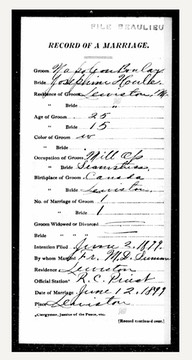 FILE BEAULIEU
RECORD OF A MARRIAGE.
Groom
Bride Josephine Houle
Residence of Groom Lewiston
" Bride "
Age of Groom 25
" Bride 15
Color of Groom w
" Bride
Occupation of Groom Mill Op
" Bride
Birthplace of Groom Canada
" Bride Lewiston
No. of Marriage of Groom 1
" Bride 1
Groom Widowed or Divorced
Bride " "
Intention Filed June 2, 1899.
By whom Married Fr. M. D.
Residence Lewiston
Official Station* R. C. Priest
Date of Marriage June 12, 1899
Place Lewiston
*Clergyman, Justice of the Peace, etc.